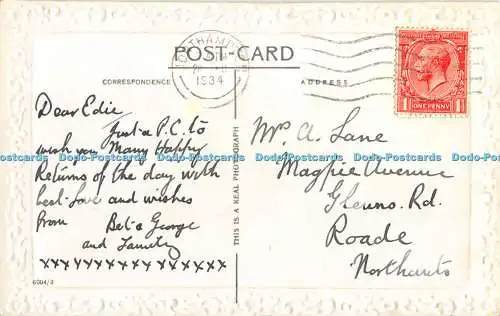 POST-CARD
1934
CORRESPONDENCE
ADDRESS
ONE PENNY
Dear Edie
Just a P.C. to
wish you Many Happy
Returns of the day with
best-love and wishes
from Bel & George
and Family
xxxxxxxxxxxxxxxxx
6004/3
THIS IS A REAL PHOTOGRAPH
Mrs A. Lane
Magpie Avenue
Rd.
Roade
Northants
Dodo-Postcards Dodo-Postcards Dodo-Postcards Dodo-Postcards Dodo-Postcards Dodo-Postcards